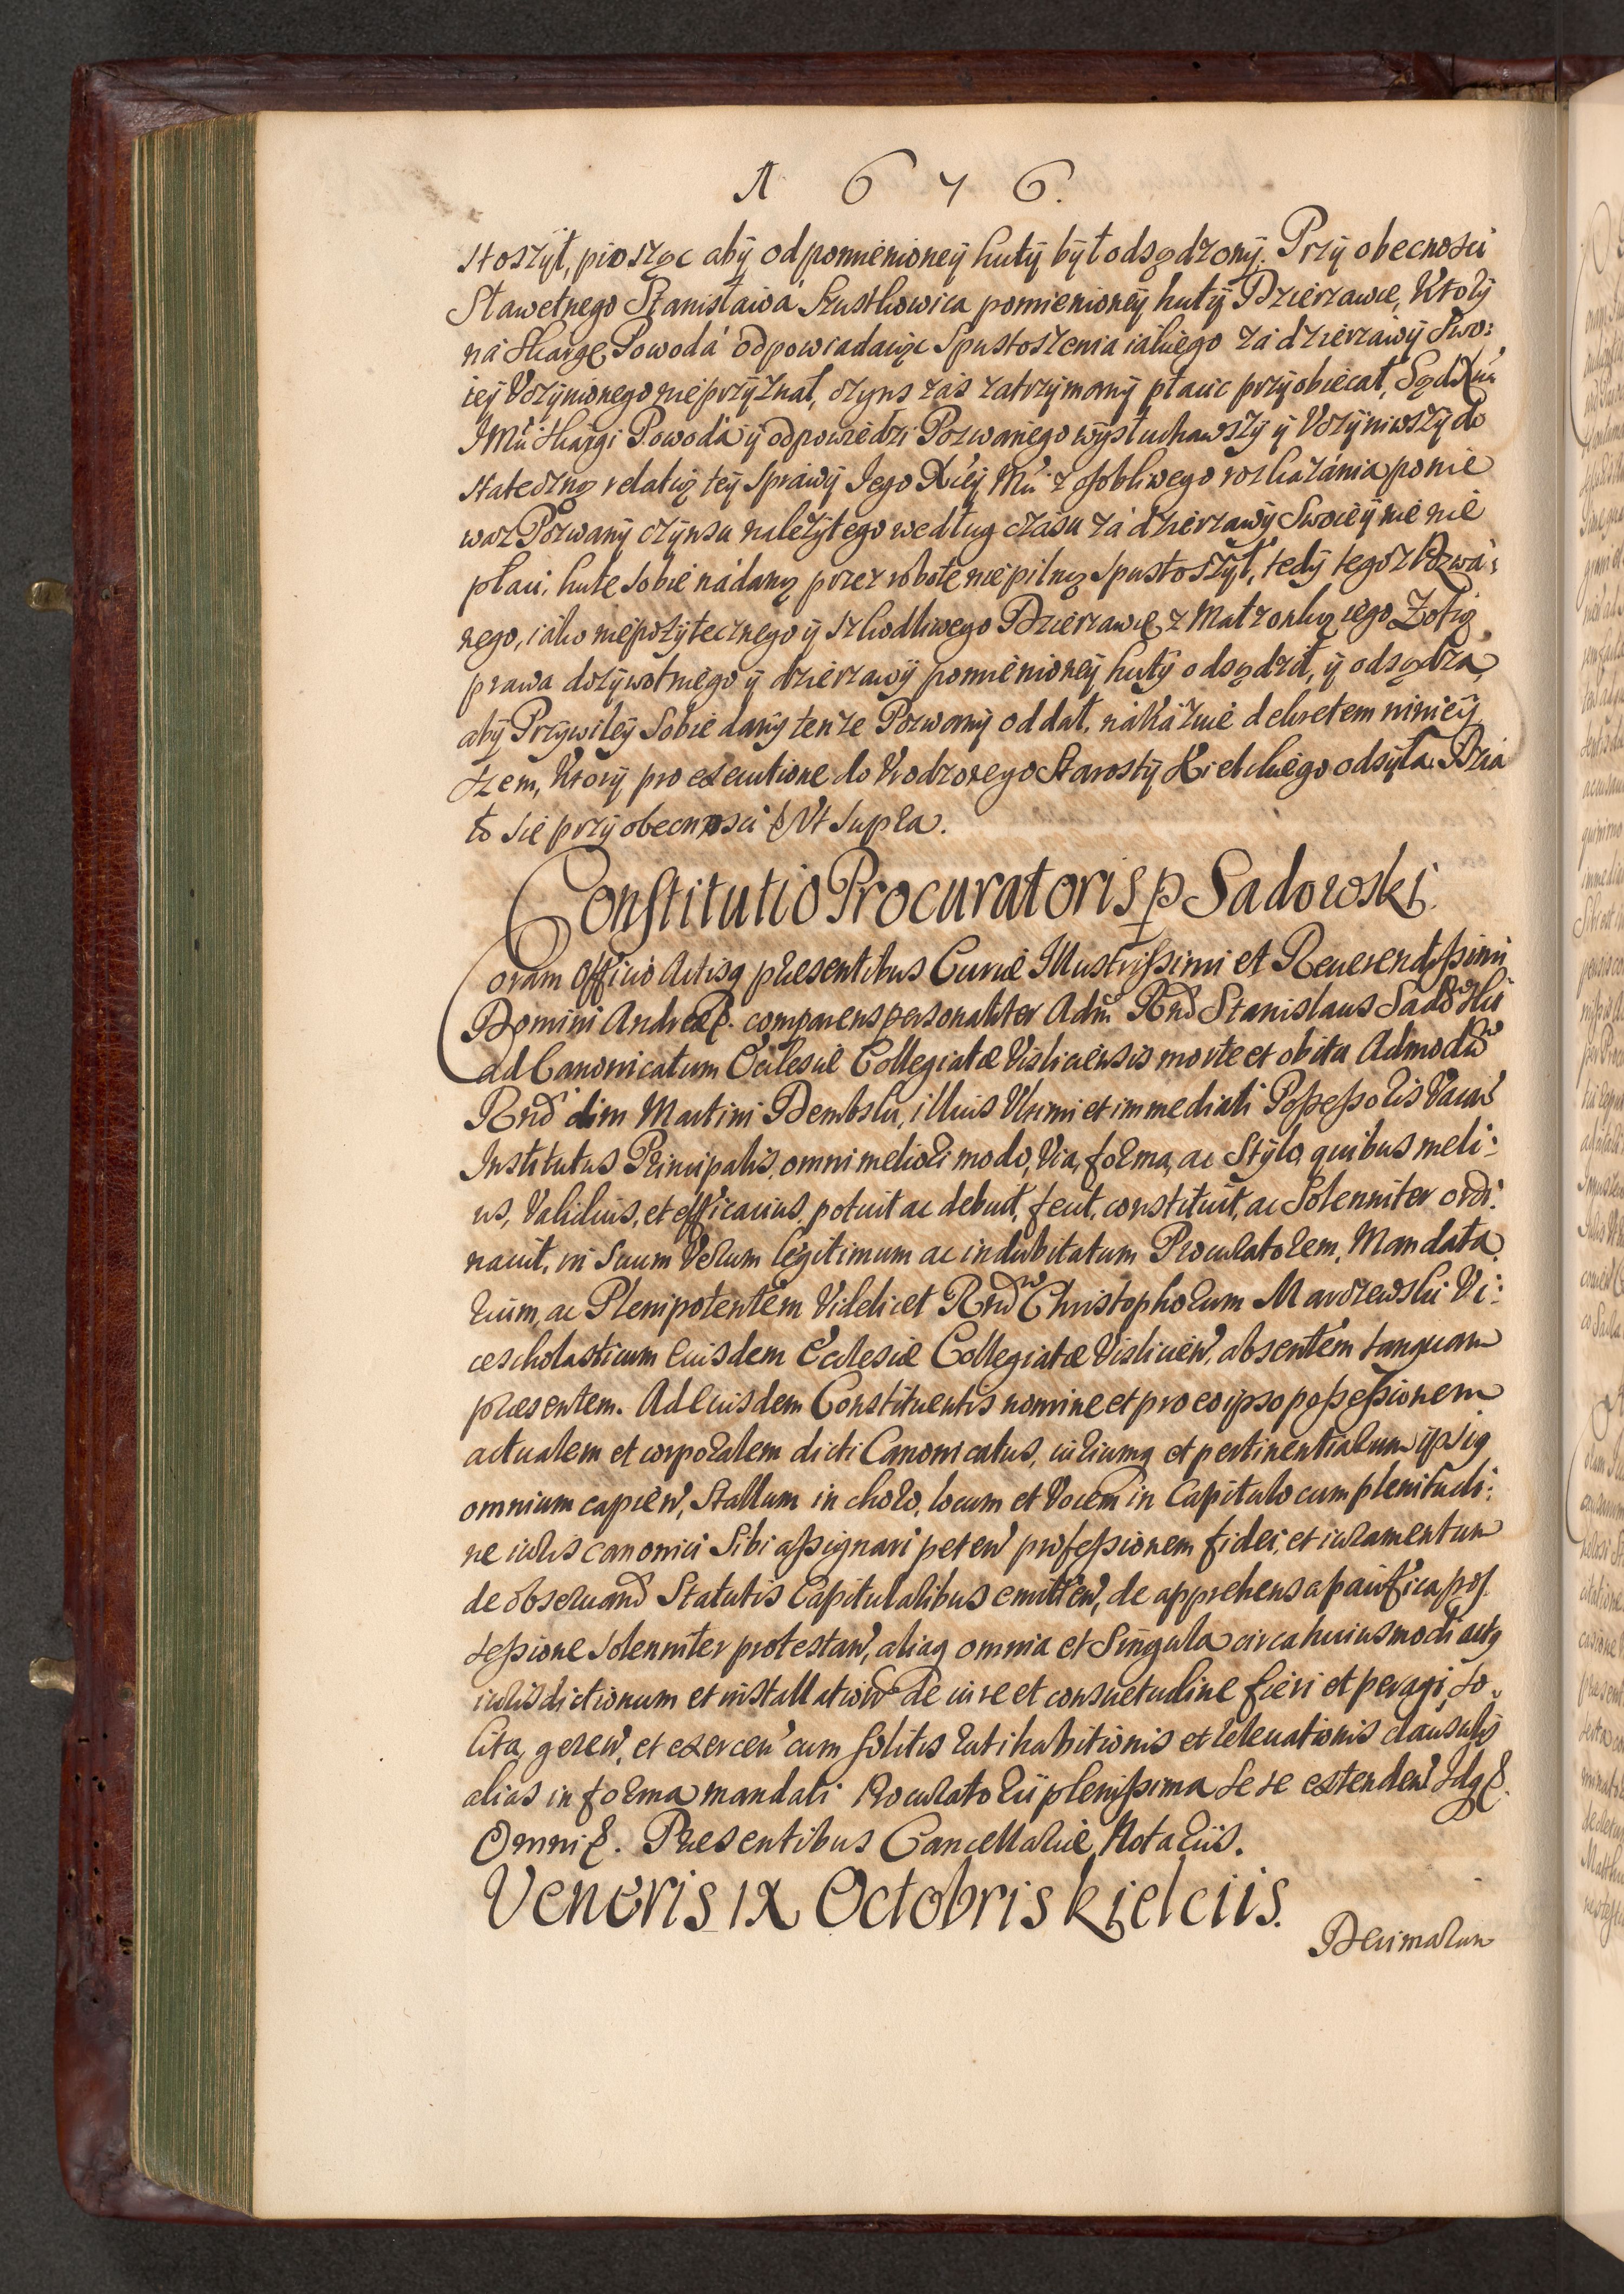 A 6 7 6.
stoszył, prosząc aby od pomienioney huty był odsądzony. Przy obecnosci
Sławetnego Stanisława Szustkowica pomienioney huty Dzierzawce, Ktory
ná skargę Powodá odpowiadaiąc Spustoszenia iakiego zá dzierzáwy Swo:
iey Vczynionego nie przyznał, czyns záś zatrzymany płacić przyobiecał, Sąd Xcia
IMći skargi Powodá y odpowiedzi Pozwanego wysłuchawszy y Vczyniwszy do
stateczną relatią tey Spráwy Iego Xcey Mći z osobliwego roskazánia ponie
waz Pozwany czynsu należytego według czásu zá dzierzawy Swoiey nie nie
płaci, hutę sobie nádaną przez robotę nie pilną Spustoszył, tedy tegoz Pozwa:
nego, iáko niepożytecznego y szkodliwego Dzierzawcę z Małzonką iego Zofią
prawa dożywotniego y dzierzawy pomienioney huty odsądził, y odsądza,
aby Przywiley Sobie dany tenze Pozwany oddał, nákázuie dekretem ninieÿ
szem, Ktory pro executione do Vrodzonego Starosty Kieleckiego odsyła. Dzia
ło sie przy obecnosci &c Vt supra.
Constitutio Procuratoris p Sadowski.
Coram Officio Actisq̃ præsentibus Curiæ Illustrissimi et Reuerendissimi
Domini Andreæ &c. comparens personaliter Adm̃ Rnd̃ Stanislaus Sadowski
ad Canonicatum Ecclesiæ Collegiatæ Visliciensis morte et obitu Admodũ
Rnd̃ olim Martini Dembski, illius Vltimi et immediati Possessoris Vacañ
Institutus Principalis, omni meliori modo, Via, forma, ac Stylo, quibus meli:
us, Validius, et efficacius, potuit ac debuit, fecit, constituit, ac Solenniter ordi:
nauit, in Suum Verum legitimum ac indubitatum Procuratorem, Mandata
rium, ac Plenipotentem Videlicet Rnd̃ Christophorum Marczewski Vi:
cescholasticum eiusdem Ecclesiæ Collegiatæ Visliciẽn, absentem tanquam
præsentem. Ad eiusdem Constituentis nomine et pro eo ipso possessionem
actualem et corporalem dicti Canonicatus, iuriumq̃ et pertinentiarum ipsiq
omnium capieñ, Stallum in choro, locum et Vocem in Capitulo cum plenitudi:
ne iuris canonici Sibi assignari peteñ professionem fidei, et iuramentum
de obseruand̃ Statutis Capitularibus emitteñ, de apprehensa pacifica pos
sessione solenniter protestañ, aliaq̃ omnia et Singula circa huiusmodi actq
iurisdictionum et installatioñ de iure et consuetudine fieri et peragi, so
lita, gereñ, et exerceñ cum solitis ratihabitionis et releuationis clausulis
alias in forma mandati Procuratorii plenissima se se extendeñ Idq̃ &c.
Omni &c. Præsentibus Cancellariæ Notariis.
Veneris IX Octobris Kielciis.
Decimarum